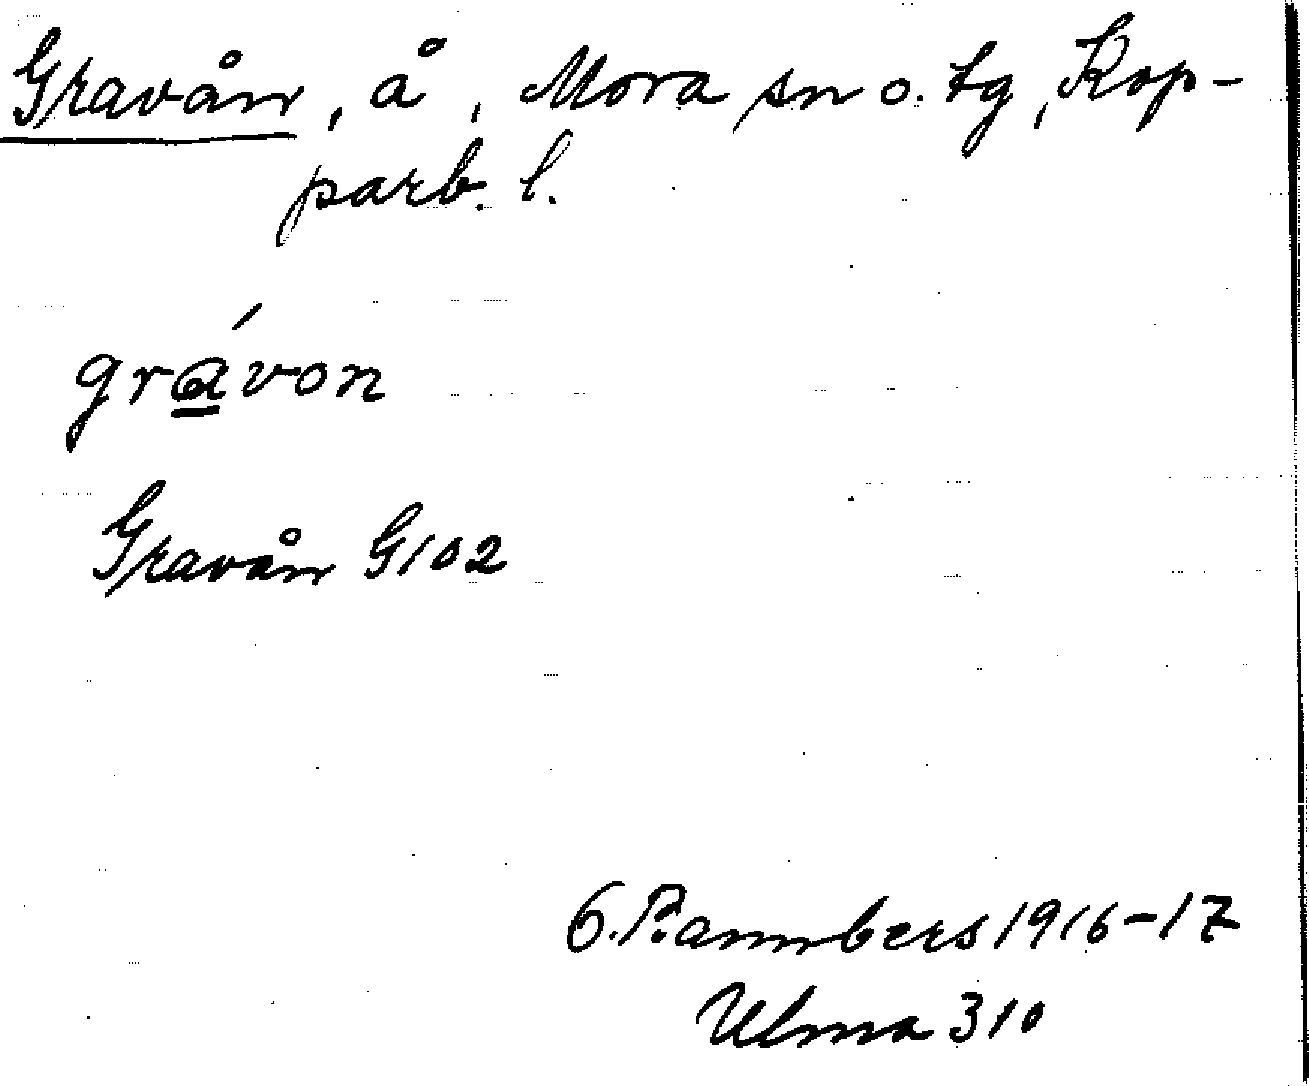 Gravån, å, Mora sn o. tg, Kop-
parb. l.
grávon
Gravån G102
O. Rannbers 1916-17
Ulma 310